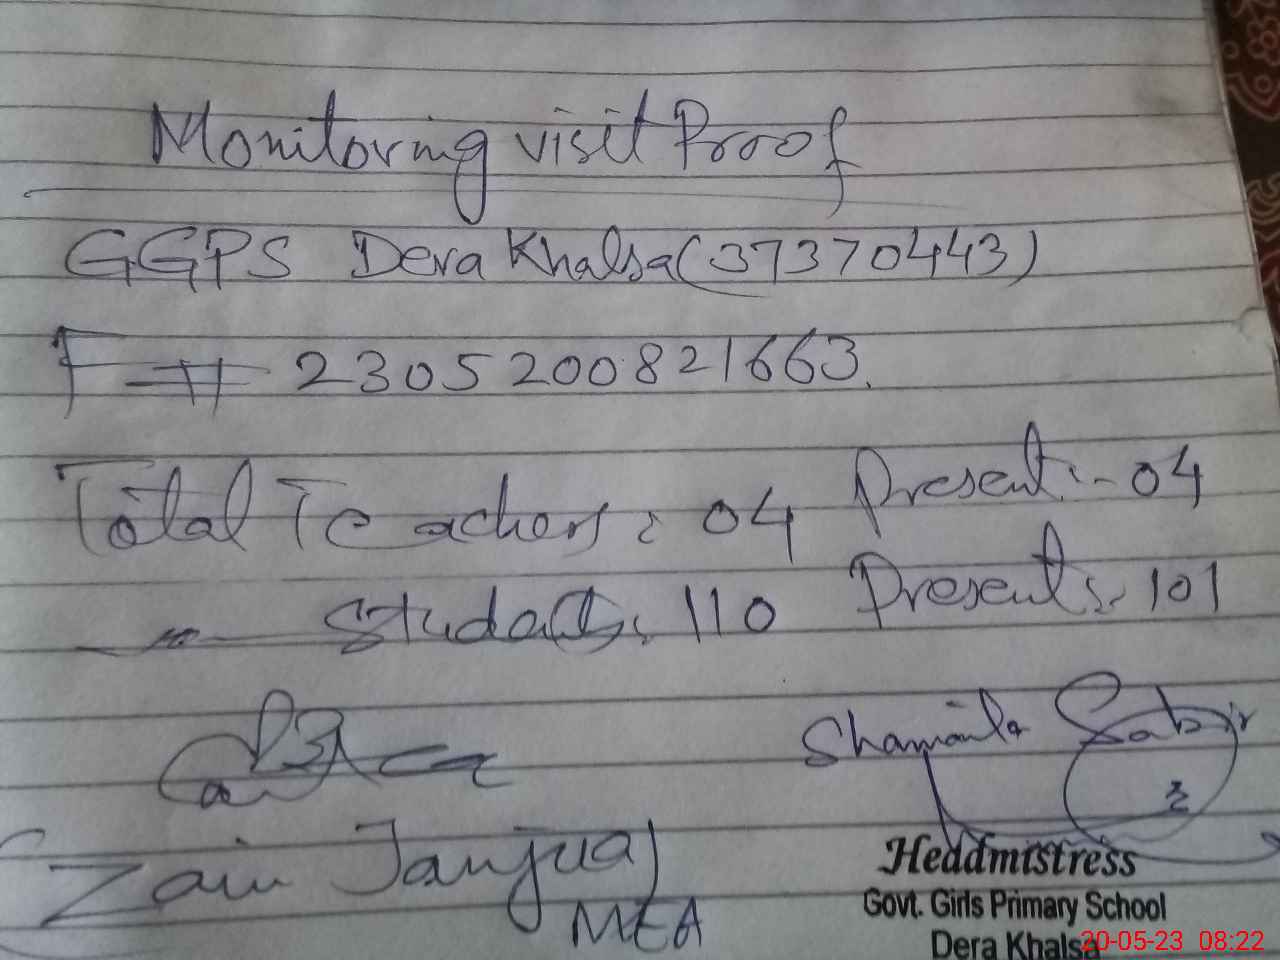 Monitoring visit Proof
GGPS Dera Khalsa (37370443)
F # 2305200821663.
Total Teachers: 04 Present:- 04
-"- Students: 110 Present: 101
Shamaila Sabir
(Zain Janjua)
MEA
Headmistress
Govt. Girls Primary School
Dera Khalsa
20-05-23 08:22